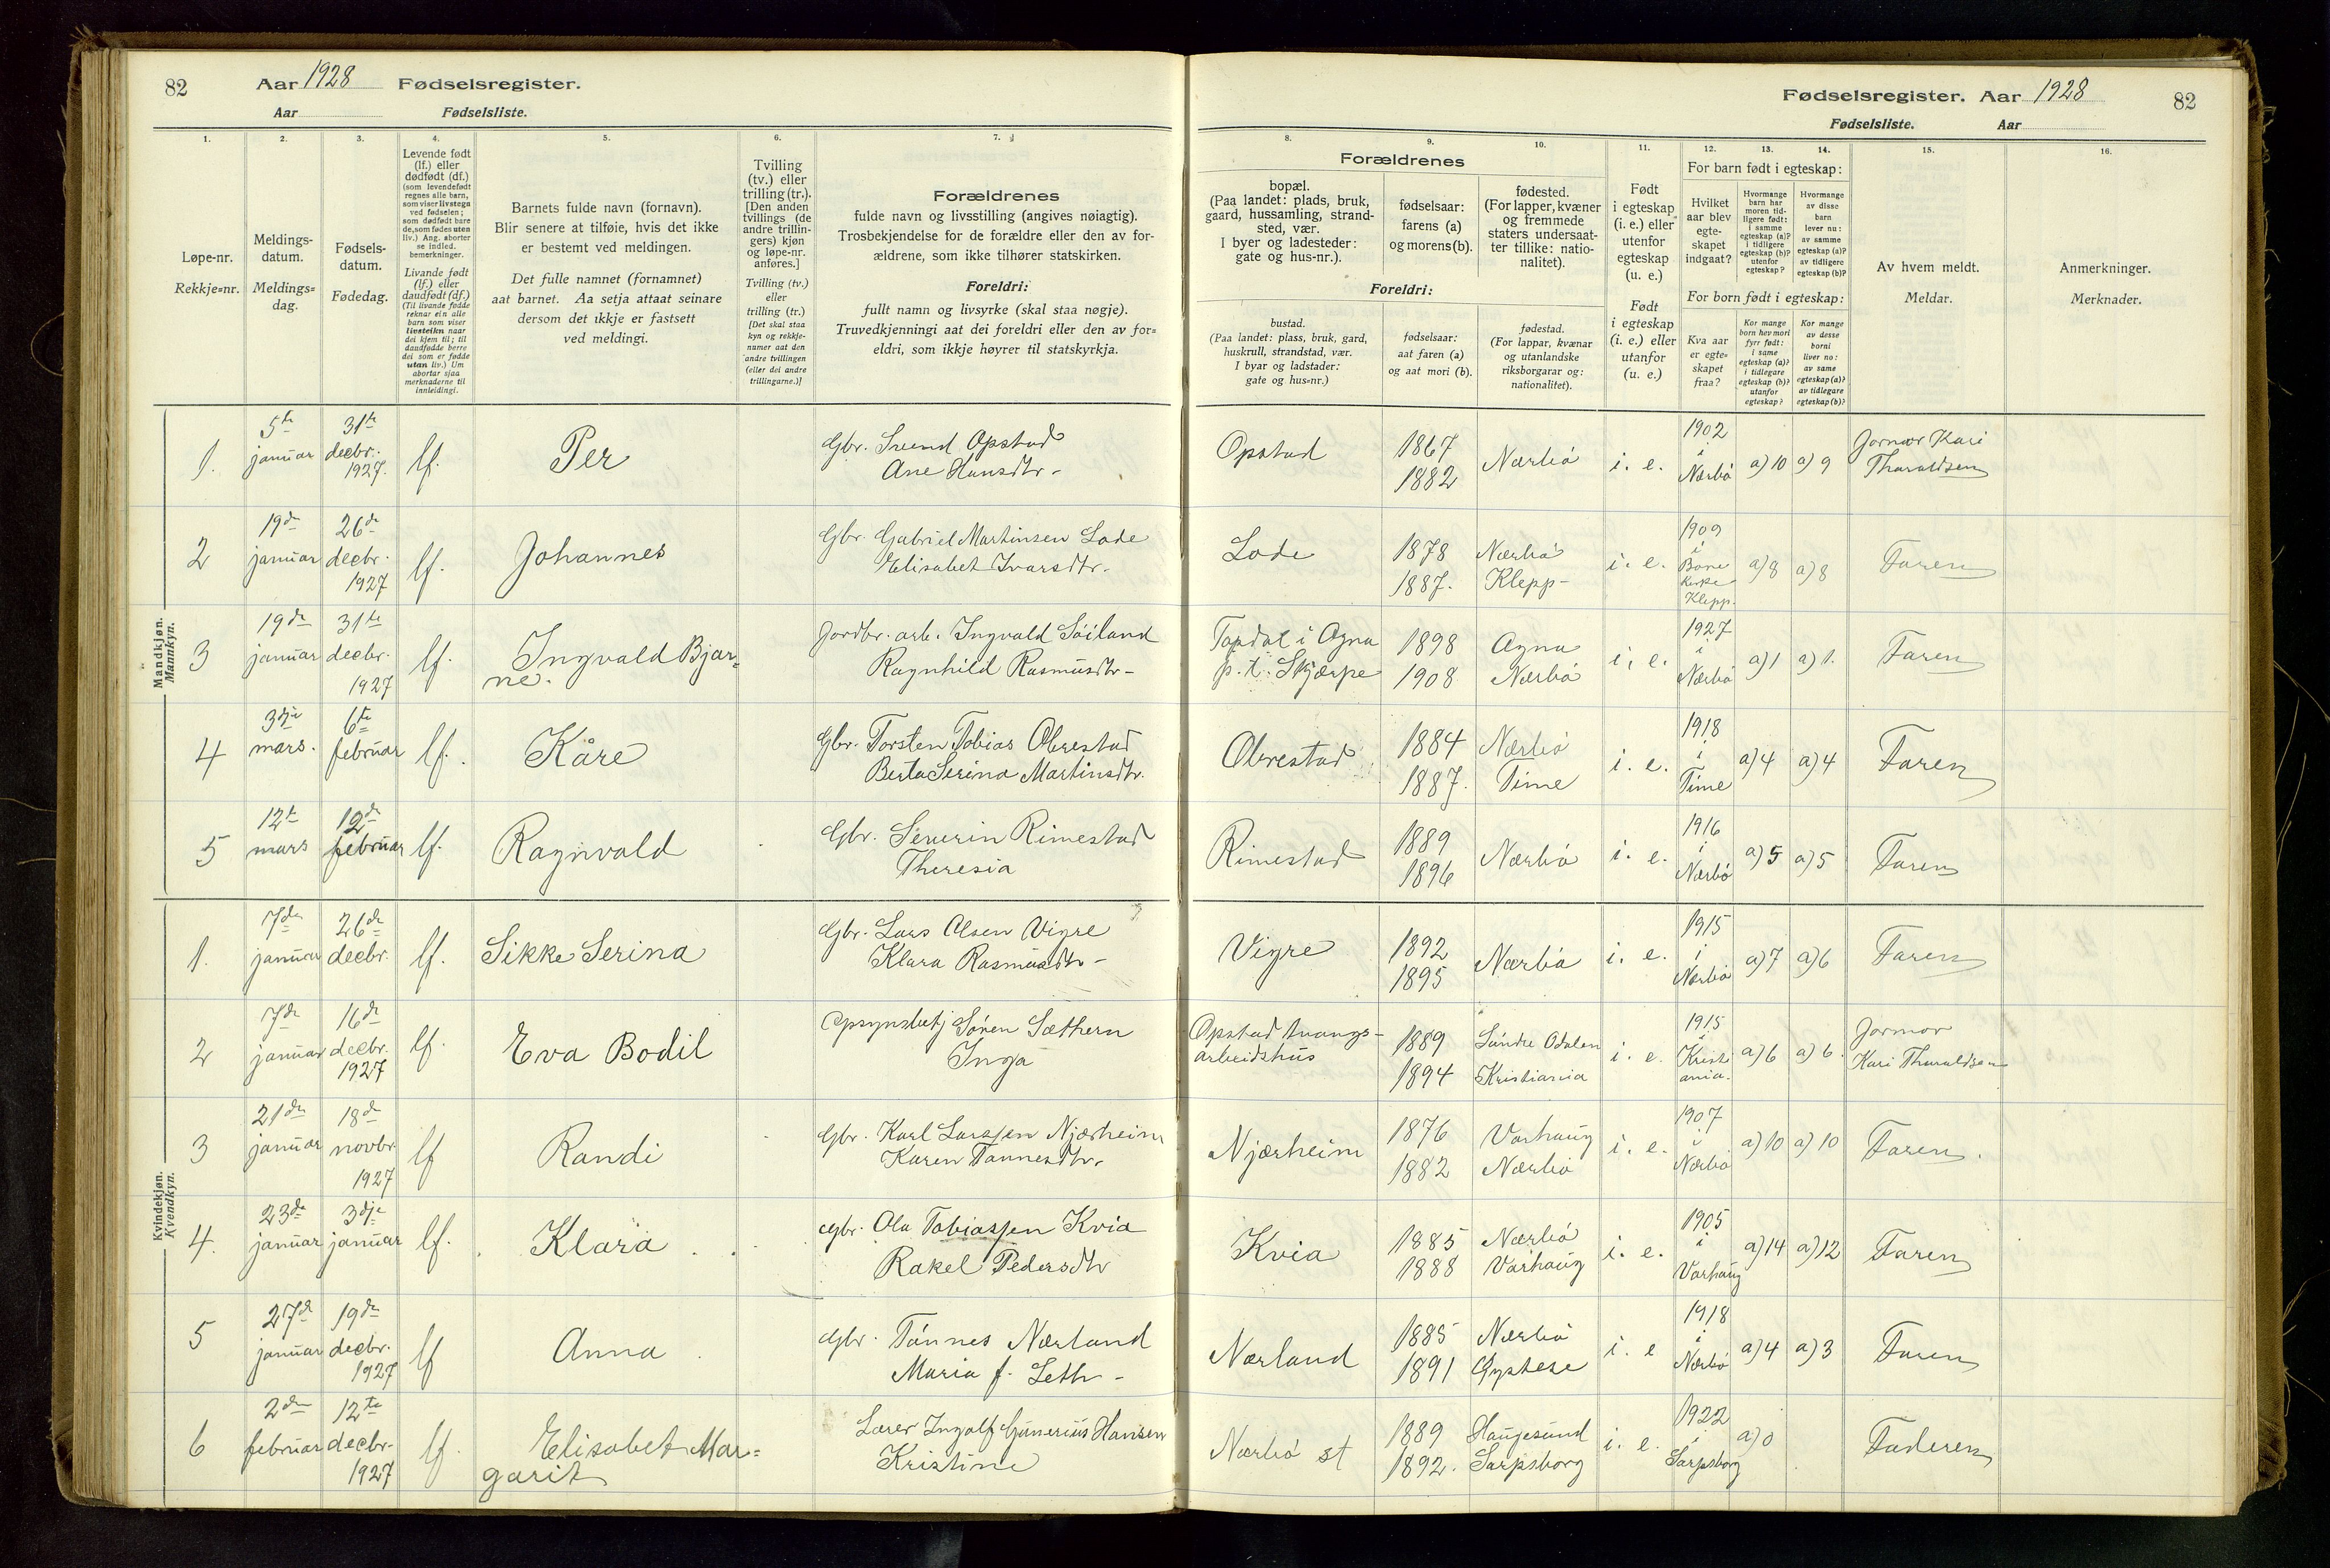 82
Aar 1928
Fødselsregister.
Aar
Fødselsliste.
Fødselsregister. Aar 1928
82
Fødselsliste.
Aar
1.
Løpe-nr.
Rekkje=nr.
2.
Meldings-
datum.
Meldings=
dag.
3.
Fødsels-
datum.
Fødedag.
4.
Levende født
(lf.) eller
dødfødt (df.)
(som levendefødt
regnes alle barn,
som viser livstegn
ved fødselen;
som dødfødt bare
de, som fødes uten
liv.) Ang. aborter
se indled.
bemerkninger.
Livande født
(lf.) eller
daudfødt (df.)
(Til livande fødde
reknar ein alle
barn som viser
livsteikn naar
dei kjem til; til
daudfødde berre
dei som er fødde
utan liv.) Um
abortar sjaa
merknaderne til
innleidingi.
5.
Barnets fulde navn (fornavn).
Blir senere at tilføie, hvis det ikke
er bestemt ved meldingen.
Det fulle namnet (fornamnet)
aat barnet. Aa setja attaat seinare
dersom det ikkje er fastsett
ved meldingi.
6.
Tvilling
(tv.) eller
trilling (tr.).
[Den anden
tvillings (de
andre trillin-
gers) kjøn
og løpe-nr.
anføres.]
Tvilling (tv.)
eller
trilling (tr.)
[Det skal staa
kyn og rekkje-
numer aat den
andre tvillingen
(eller dei andre
trillingarne.)]
7.
Forældrenes
fulde navn og livsstilling (angives nøiagtig).
Trosbekjendelse for de forældre eller den av for-
ældrene, som ikke tilhører statskirken.
Foreldri:
fullt namn og livsyrke (skal staa nøgje).
Truvedkjenningi aat dei foreldri eller den av for=
eldri, som ikkje høyrer til statskyrkja.
8.
Forældrenes
bopæl.
(Paa landet: plads, bruk,
gaard, hussamling, strand-
sted, vær.
I byer og ladesteder:
gate og hus-nr.).
Foreldri:
bustad.
(Paa landet: plass, bruk, gard,
huskrull, strandstad, vær.
I byar og ladstader:
gate og hus=nr.)
9.
fødselsaar:
farens (a)
og morens (b).
fødselsaar:
aat faren (a)
og aat mori (b).
10.
fødested.
(For lapper, kvæner
og fremmede
staters undersaat-
ter tillike: natio-
nalitet).
fødestad.
(For lappar, kvænar
og utanlandske
riksborgarar og:
nationalitet).
11.
Født
i egteskap
(i. e.) eller
utenfor
egteskap
(u. e.)
Født
i egteskap
(i. e.) eller
utanfor
(u. e.)
For barn født i egteskap:
12.
Hvilket
aar blev
egte-
skapet
indgaat?
13.
Hvormange
barn har
moren tid-
ligere født:
i samme
egteskap (a)?
i tidligere
egteskap (b)?
utenfor
egteskap?
14.
Hvormange
av disse
barn
lever nu:
av samme
egteskap (a)?
av tidligere
egteskap (b)?
For born født i egteskap:
Kva aar
er egte=
skapet
fraa?
Kor mange
born hev mori
fyrr født:
i same
egteskap (a)?
i tidlegare
egteskap (b)?
utanfor
egteskap?
Kor mange
av desse
borni
liver no:
av same
egteskap (a)?
av tidlegare
egteskap (b)?
15.
Av hvem meldt.
Meldar.
16.
Anmerkninger.
Merknader.
Mandkjøn.
Mannkyn.
1. 5te januar 31te decbr. 1927. lf. Per Gbr. Svend Opstad Ane Hansdtr. Opstad 1867 1882 Nærbö i. e. 1902 i Nærbö a) 10 a) 9 Jormor Kari Tharaldsen
2 19de januar 26de decbr. 1927 lf. Johannes Gbr. Gabriel Martinsen Lode Elisabet Ivarsdtr. Lode 1878 1887. Nærbö Klepp i. e. 1909 i Bore Kirke Klepp. a) 8 a) 8 Faren
3 19de januar 31te decbr. 1927 lf. Ingvald Bjar=ne. Jordbr. arb. Ingvald Söiland Ragnhild Rasmusdtr. Tapdal i Ogna p. t. Skjærpe 1898 1908 Ogna Nærbö i. e. 1927 i Nærbö a) 1 a) 1. Faren
4 3dje mars. 6te februar lf. Kåre Gbr. Torsten Tobias Obrestad Berta Serina Martinsdtr. Obrestad 1884 1887. Nærbö Time i. e. 1918 i Time a) 4 a) 4 Faren
5 12te mars 12de februar lf. Ragnvald Gbr. Severin Rimestad Theresia Rimestad 1889 1896 Nærbö i. e. 1916 i Nærbö a) 5 a) 5 Faren
Kvindekjøn.
Kvendkyn.
1. 7de januar 26de decbr. lf. Sikke Serina Gbr. Lars Olsen Vigre Klara Rasmusdtr. Vigre 1892 1895 Nærbö i. e. 1915 i Nærbö a) 7 a) 6 Faren
2 7de januar 16de decbr. 1927 lf. Eva Bodil Opsynsbetj Sören Sæthern Inga Opstad tvangs-arbeidshus 1889 1894 Söndre Odalen Kristiania i. e. 1915 i Kristiania. a) 6 a) 6. Jormor Kari Tharaldsen
3 21de januar 18de novbr. 1927 lf Randi Gbr. Karl Larssen Njærheim Karen Tønnesdtr. Njærheim 1876 1882 Varhaug Nærbö i. e. 1907 i Nærbö a) 10 a) 10 Faren.
4. 23de januar 3dje januar lf. Klara Gbr. Ola Tobiassen Kvia Rakel Pedersdtr Kvia 1885 1888 Nærbö Varhaug i. e. 1905 i Varhaug a) 14 a) 12 Faren
5 27de januar 19de decbr. 1927 lf Anna Gbr. Tönnes Nærland Maria f. Leth Nærland 1885 1891 Nærbö Øystese i. e 1918 i Nærbö a) 4 a) 3 Faren
6 2den februar 12te decbr. 1927 lf. Elisabet Mar=garit Lærer Ingolf Gunerius Hansen Kristine Nærbö st 1889 1892. Haugesund Sarpsborg i. e. 1922 i Sarpsborg a) 0 Faderen